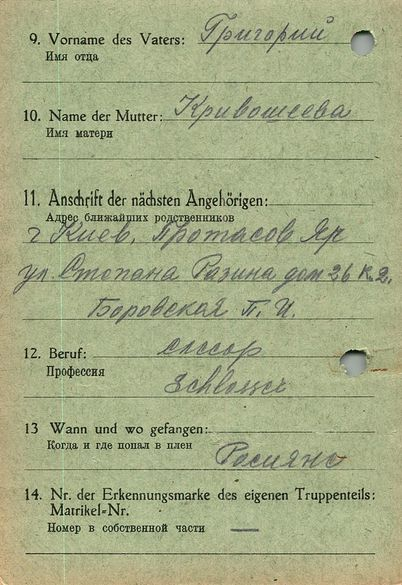 9. Vorname des Vaters: Григорий
Имя отца
10. Name der Mutter: Кривошеева
Имя матери
11. Anschrift der nächsten Angehörigen:
Адрес ближайших родственников
г Киев, Протасов Яр
ул. Стопана Разина дом 26 к.2.
Боровская П. И.
12. Beruf: слесор
Профессия
Schlosser
13 Wann und wo gefangen:
Когда и где попал в плен
Росияне
14. Nr. der Erkennungsmarke des eigenen Truppenteils:
Matrikel-Nr.
Номер в собственной части —